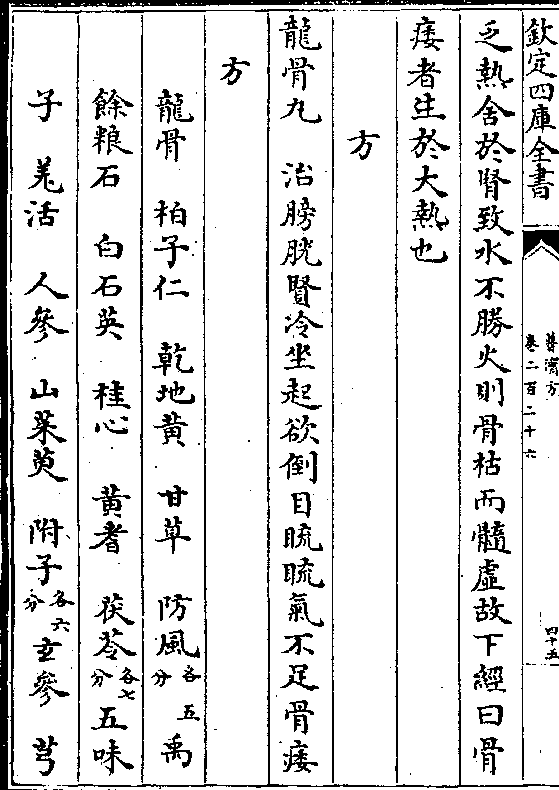 欽定四庫全書
普濟方
卷二百二十六
四十五
乏熱舍於腎致水不勝火則骨枯而髓虛故下經曰骨
痿者生於大熱也
方
龍骨丸　治膀胱腎冷坐起欲倒目䀮䀮氣不足骨痿
方
龍骨　柏子仁　乾地黃　甘草　防風各五分　禹
餘粮石　白石英　桂心　黃耆　茯苓各七分　五味
子　羌活　人參　山茱萸　附子各六分　玄參　芎